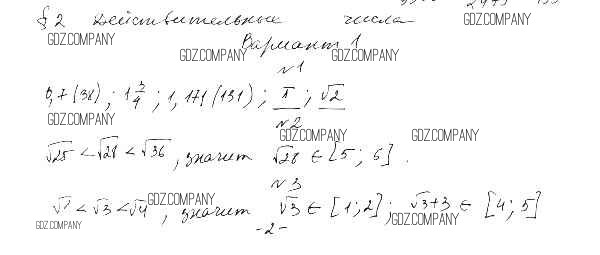 § 2 Действительные числа
GDZ.COMPANY
GDZ.COMPANY
Вариант 1
GDZ.COMPANY
GDZ.COMPANY
№ 1
0,7(38); 1 3/4; 1,171(131); π; √2
GDZ.COMPANY
№ 2
GDZ.COMPANY
GDZ.COMPANY
√25 < √28 < √36, значит √28 ∈ [5; 6].
№ 3
GDZ.COMPANY
√1 < √3 < √4, значит √3 ∈ [1; 2]; √3+3 ∈ [4; 5]
GDZ.COMPANY
GDZ.COMPANY
-2-